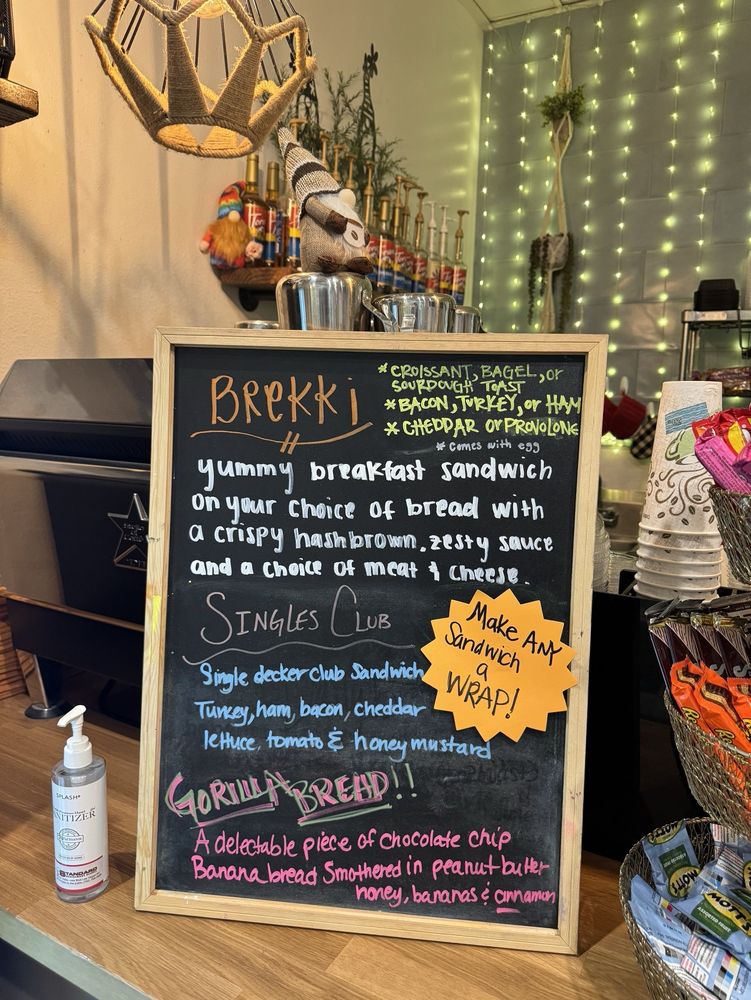 BREKKI
* CROISSANT, BAGEL, or
SOURDOUGH TOAST
* BACON, TURKEY, or HAM
* CHEDDAR or PROVOLONE
* comes with egg
yummy breakfast sandwich
on your choice of bread with
a crispy hashbrown, zesty sauce
and a choice of meat & cheese.
SINGLES CLUB
Single decker club Sandwich
Turkey, ham, bacon, cheddar
lettuce, tomato & honey mustard
Make ANY
Sandwich
a
WRAP!
GORILLA BREAD!!
A delectable piece of chocolate chip
Banana bread Smothered in peanut-butter
honey, bananas & cinnamon
SPLASH
STANDARD
MOTT'S